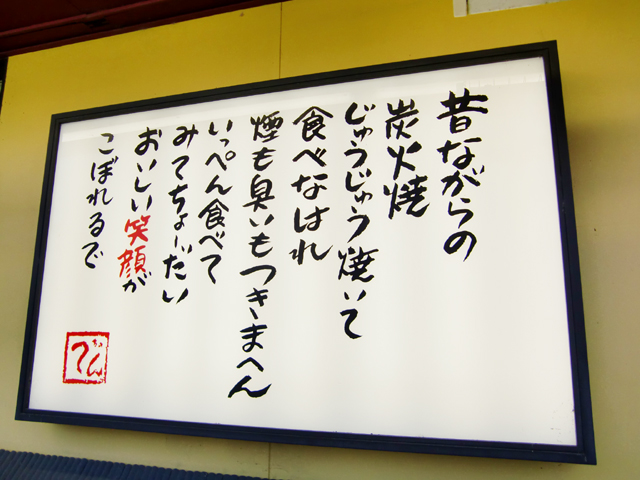 昔ながらの
炭火焼
じゅうじゅう焼いて
食べなはれ
煙も臭いもつきまへん
いっぺん食べて
みてちょーだい
おいしい笑顔が
こぼれるで